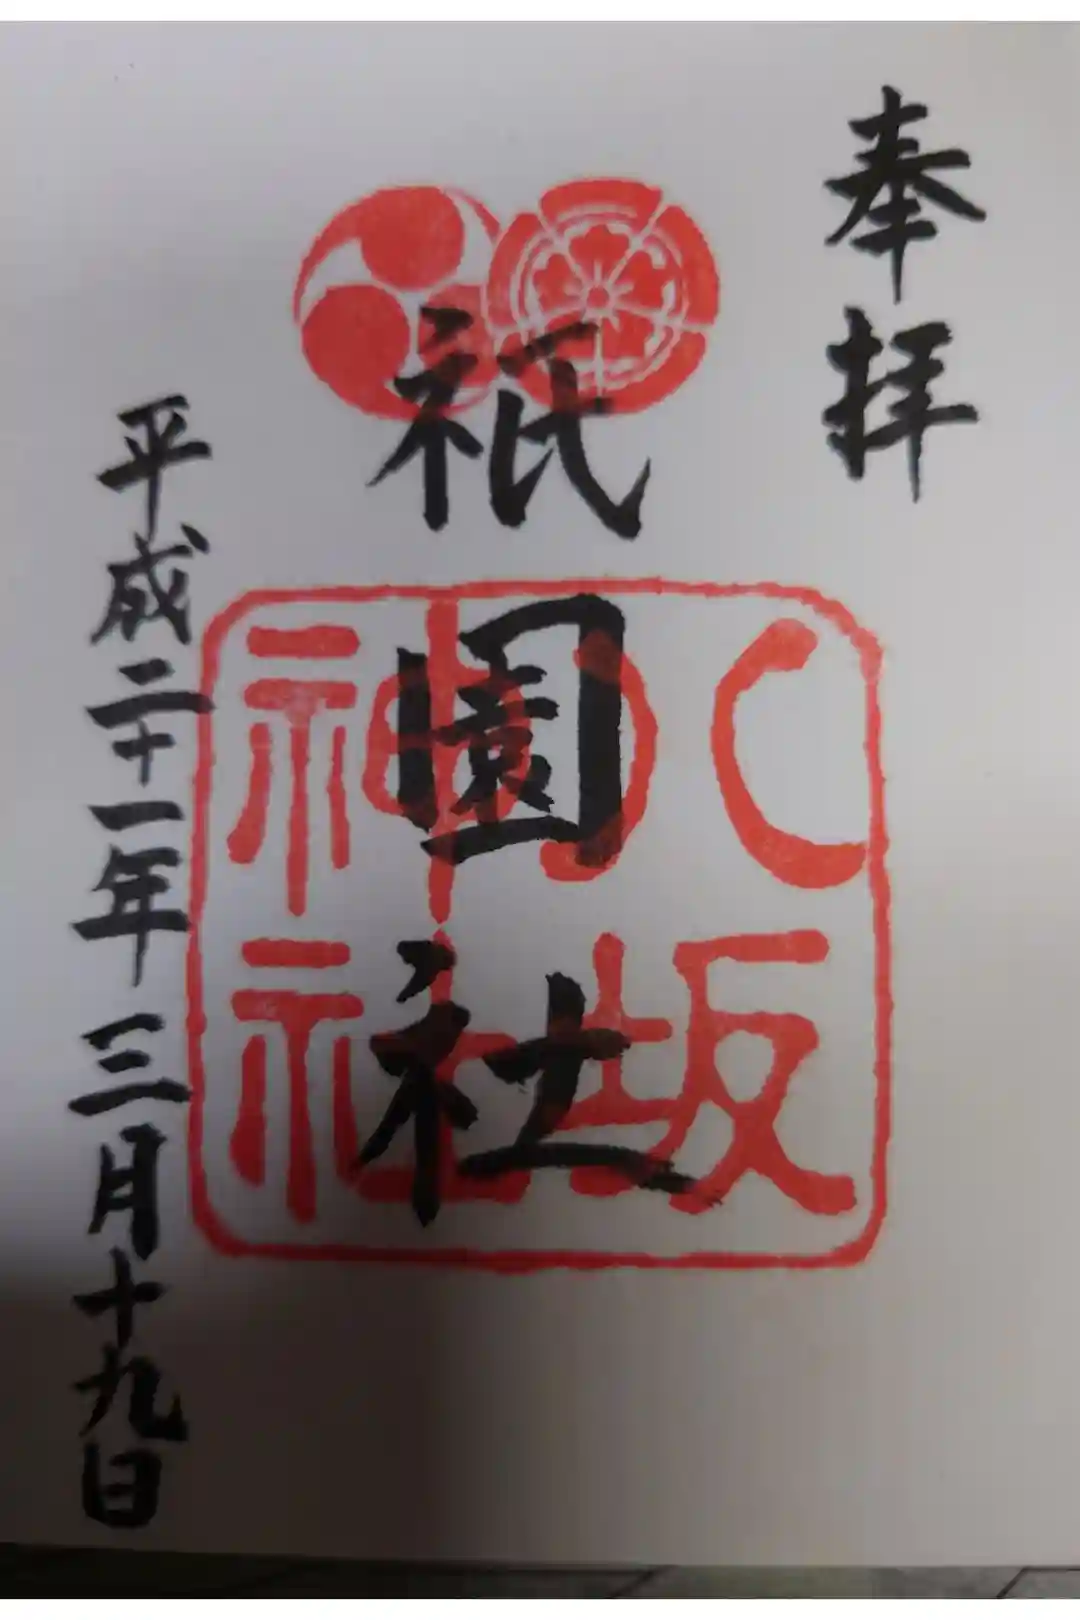 奉拝
祇園社
八坂
神社
平成二十一年三月十九日